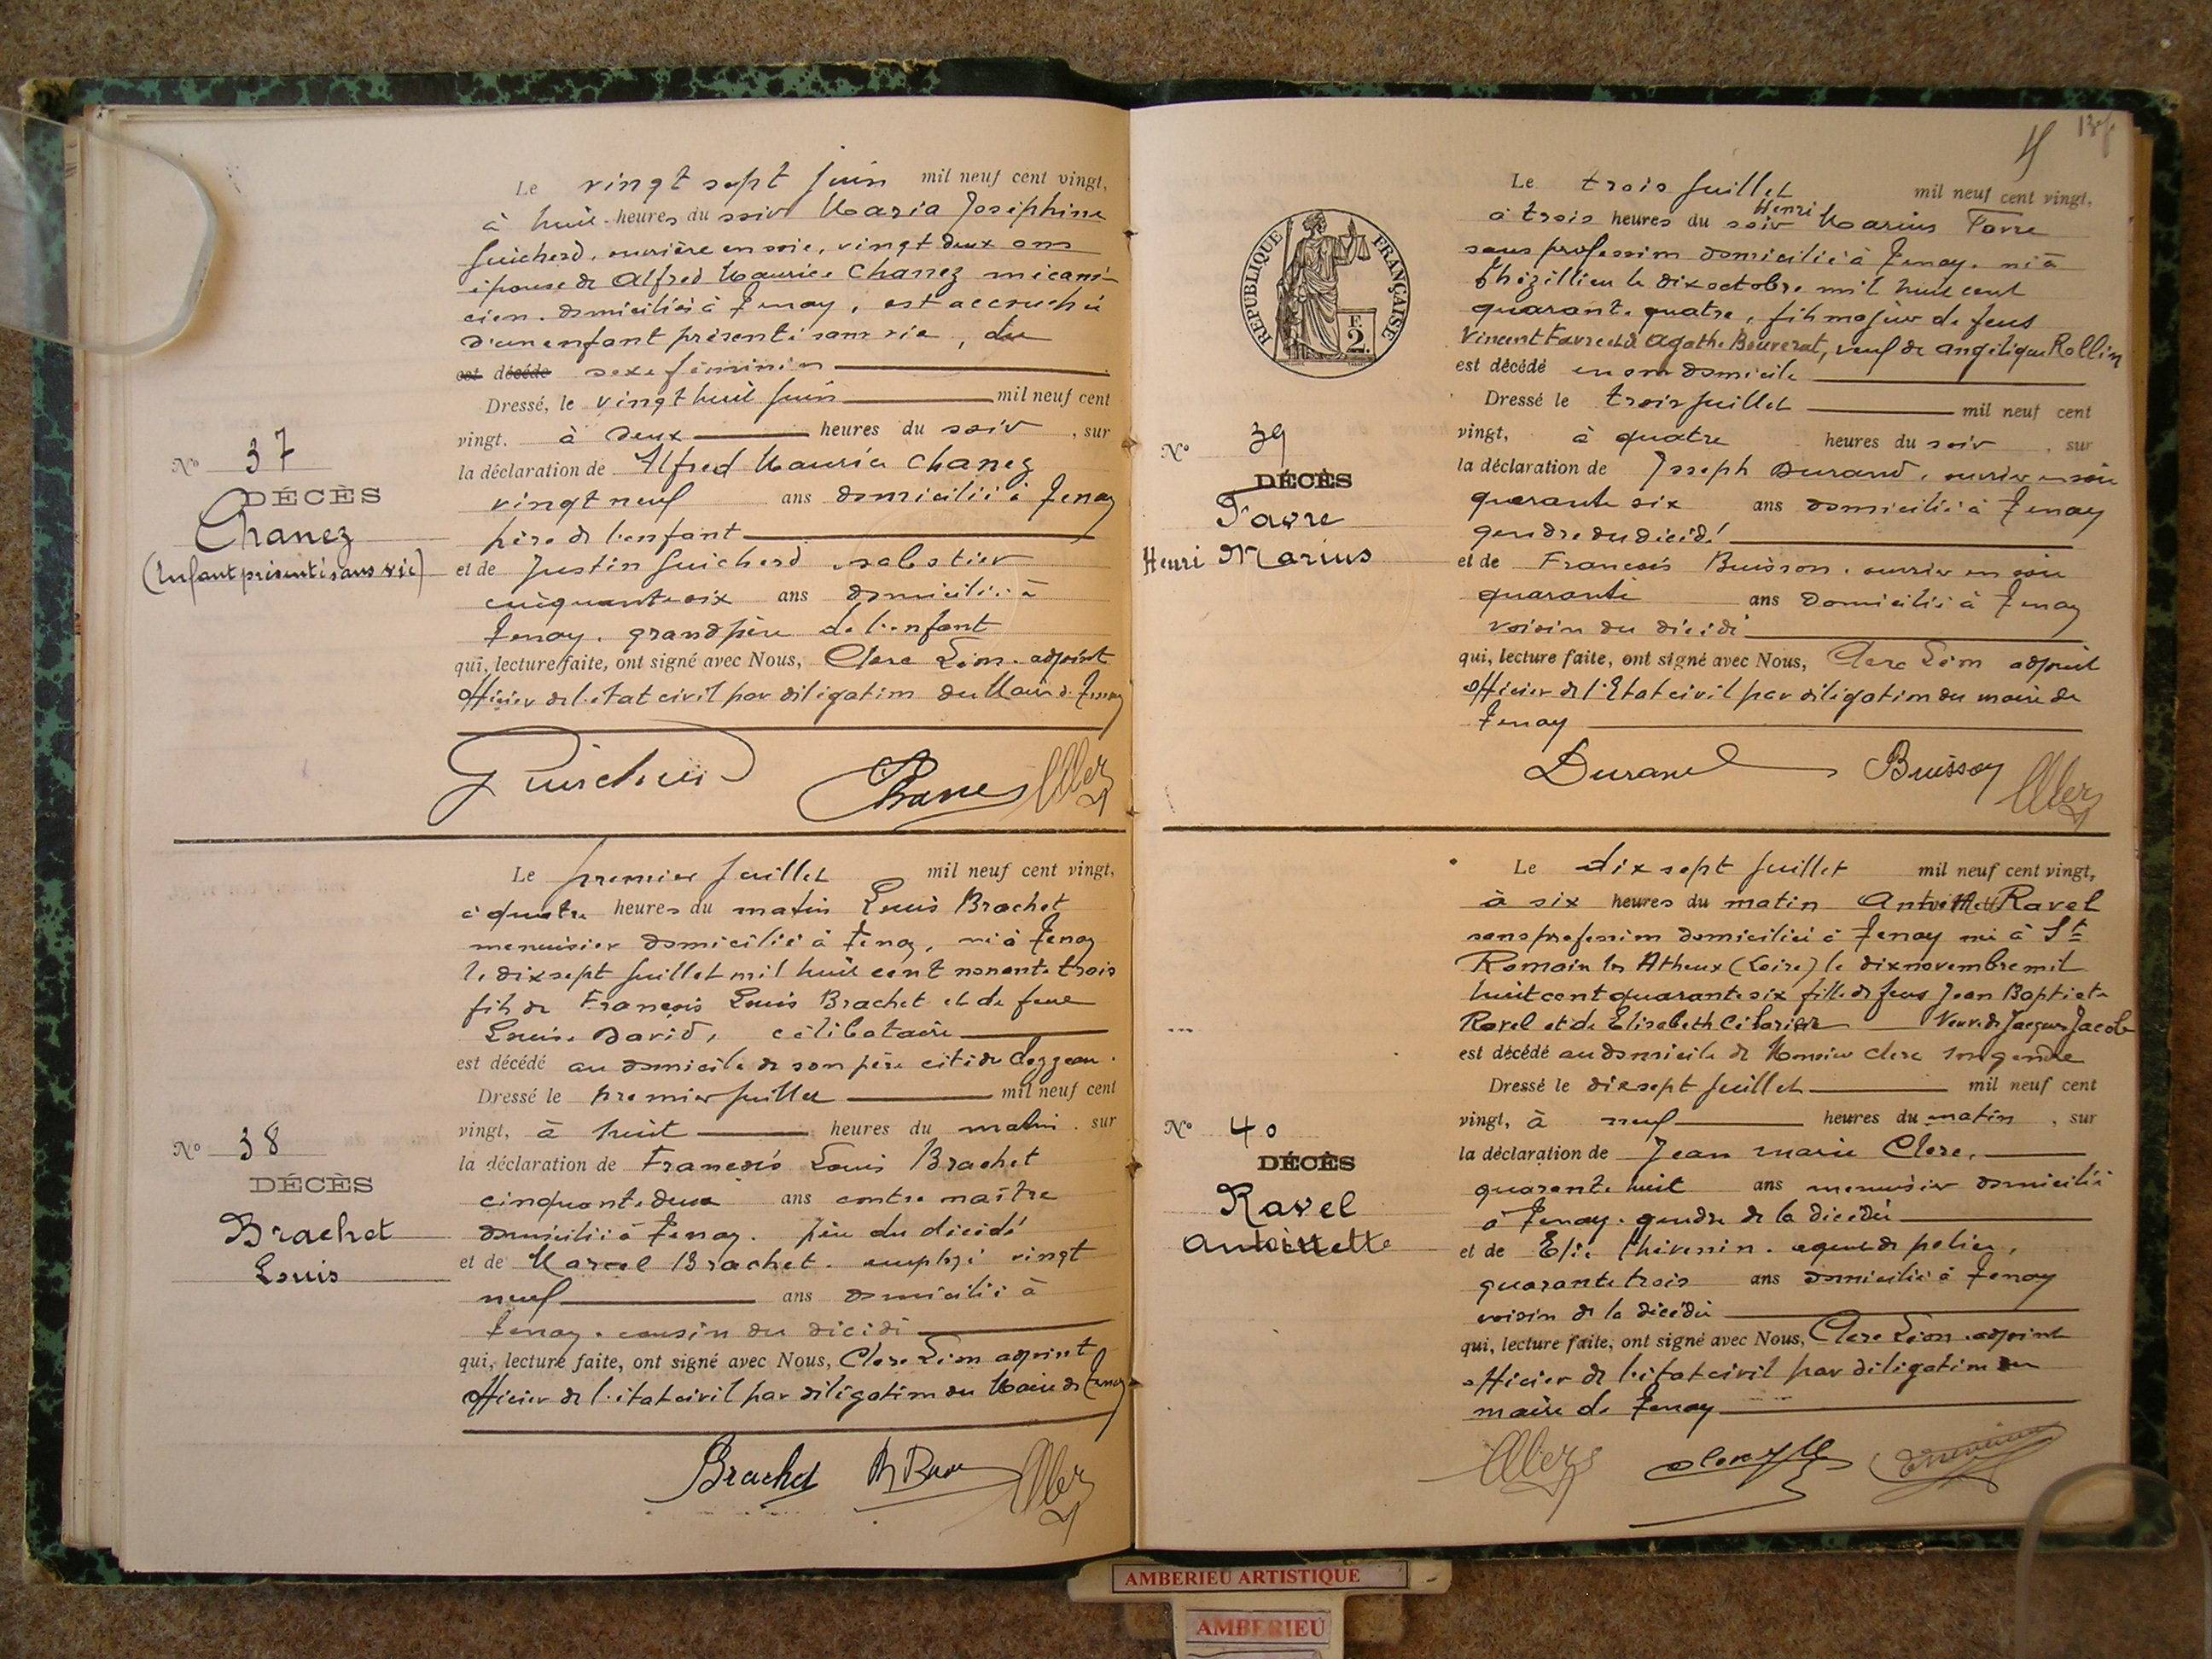 Le vingt sept juin mil neuf cent vingt,
à huit heures du soir Maria Joséphine
Guicherd, ouvrière en soie, vingt deux ans
épouse de Alfred Maurice Chanez mécani-
cien. domiciliés à Tenay, est accouchée
d'un enfant présenté sans vie, du
est décédé sexe féminin
Dressé, le vingt huit juin mil neuf cent
vingt, à deux heures du soir, sur
la déclaration de Alfred Maurice Chanez
vingt neuf ans domicilié à Tenay
père de l'enfant
et de Justin Guicherd
cinquante six ans domicilié à
Tenay. grand père de l'enfant
qui, lecture faite, ont signé avec Nous, Clerc Léon. adjoint
officier de l'état civil par délégation du Maire de Tenay
No 37
DÉCÈS
Chanez
(Enfant présenté sans vie)
Guicherd Chanez
Le premier juillet mil neuf cent vingt,
à quatre heures du matin Louis Brachet
menuisier domicilié à Tenay, né à Tenay
le dix sept juillet mil huit cent nonante trois
fils de François Louis Brachet et de feue
Louise David, célibataire
est décédé au domicile de son père cité
Dressé le premier juillet mil neuf cent
vingt, à huit heures du matin. sur
la déclaration de François Louis Brachet
cinquante deux ans contre maître
domicilié à Tenay. père du décédé
et de Marcel Brachet. employé vingt
neuf ans domicilié à
Tenay. cousin du décédé
qui, lecture faite, ont signé avec Nous, Clerc Léon adjoint
officier de l'état civil par délégation du Maire de Tenay
No 38
DÉCÈS
Brachet
Louis
Brachet
Le trois juillet mil neuf cent vingt,
Henri
à trois heures du soir Marius Favre
sans profession domicilié à Tenay. né à
Thézillieu le dix octobre mil huit cent
quarante quatre, fils majeur de feus
Vincent Favre et de Agathe Bouverat, veuf de Angélique Rollin
est décédé en son domicile
Dressé le trois juillet mil neuf cent
vingt, à quatre heures du soir, sur
la déclaration de Joseph Durand, ouvrier en soie
quarante six ans domicilié à Tenay
gendre du décédé
et de François Buisson. ouvrier en soie
quarante ans domicilié à Tenay
voisin du décédé
qui, lecture faite, ont signé avec Nous, Clerc Léon adjoint
officier de l'Etat civil par délégation du maire de
Tenay
RÉPUBLIQUE FRANÇAISE
F.
2.
No 39
DÉCÈS
Favre
Henri Marius
Durand Buisson
Le dix sept juillet mil neuf cent vingt,
à six heures du matin Antoinette Ravel
sans profession domiciliée à Tenay née à St
Romain les Atheux (Loire) le dix novembre mil
huit cent quarante six fille de feus Jean Baptiste
Ravel et de Elisabeth Veuve de Jacques Jacob
est décédé au domicile de Monsieur Clerc son gendre
Dressé le dix sept juillet mil neuf cent
vingt, à neuf heures du matin, sur
la déclaration de Jean Marie Clerc,
quarante huit ans menuisier domicilié
à Tenay. gendre de la décédée
et de Elie Thévenin. agent de police,
quarante trois ans domicilié à Tenay
voisin de la décédée
qui, lecture faite, ont signé avec Nous, Clerc Léon. adjoint
officier de l'état civil par délégation du
maire de Tenay
No 40
DÉCÈS
Ravel
Antoinette
AMBERIEU ARTISTIQUE
AMBERIEU